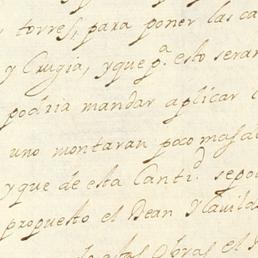 torres, para poner las ca
y Crugia, y que p.ª esto seran
podria mandar aplicar
uno montaran poco mas a
y que de esta Canti.d se po
propuesto el Dean y Cavil
Obras el